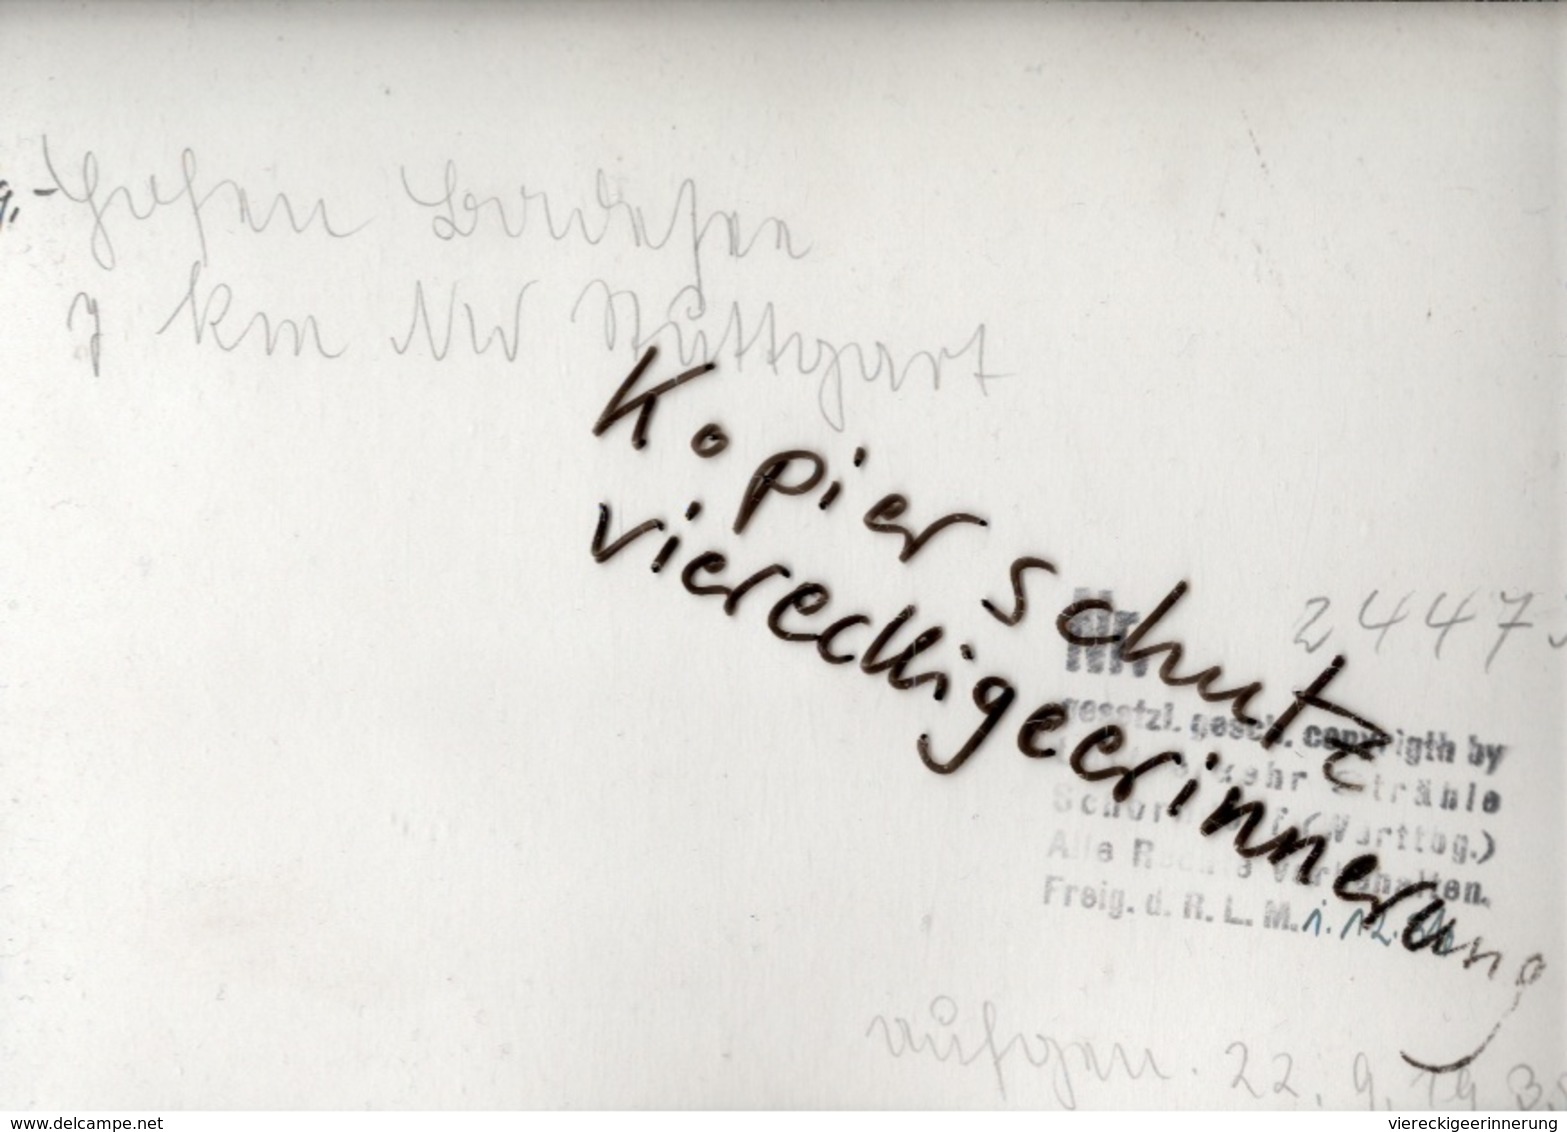 9,-
7 km NW Stuttgart
Kopierschutz
viereckigeerinnerung
Nr. 2447
gesetzl. gesch. copyrigth by
Strähle
Schorndorf (Württbg.)
Alle Rechte vorbehalten.
Freig. d. R. L. M. 1.12.
aufgen. 22. 9. 193
de.delcampe.net
viereckigeerinnerung